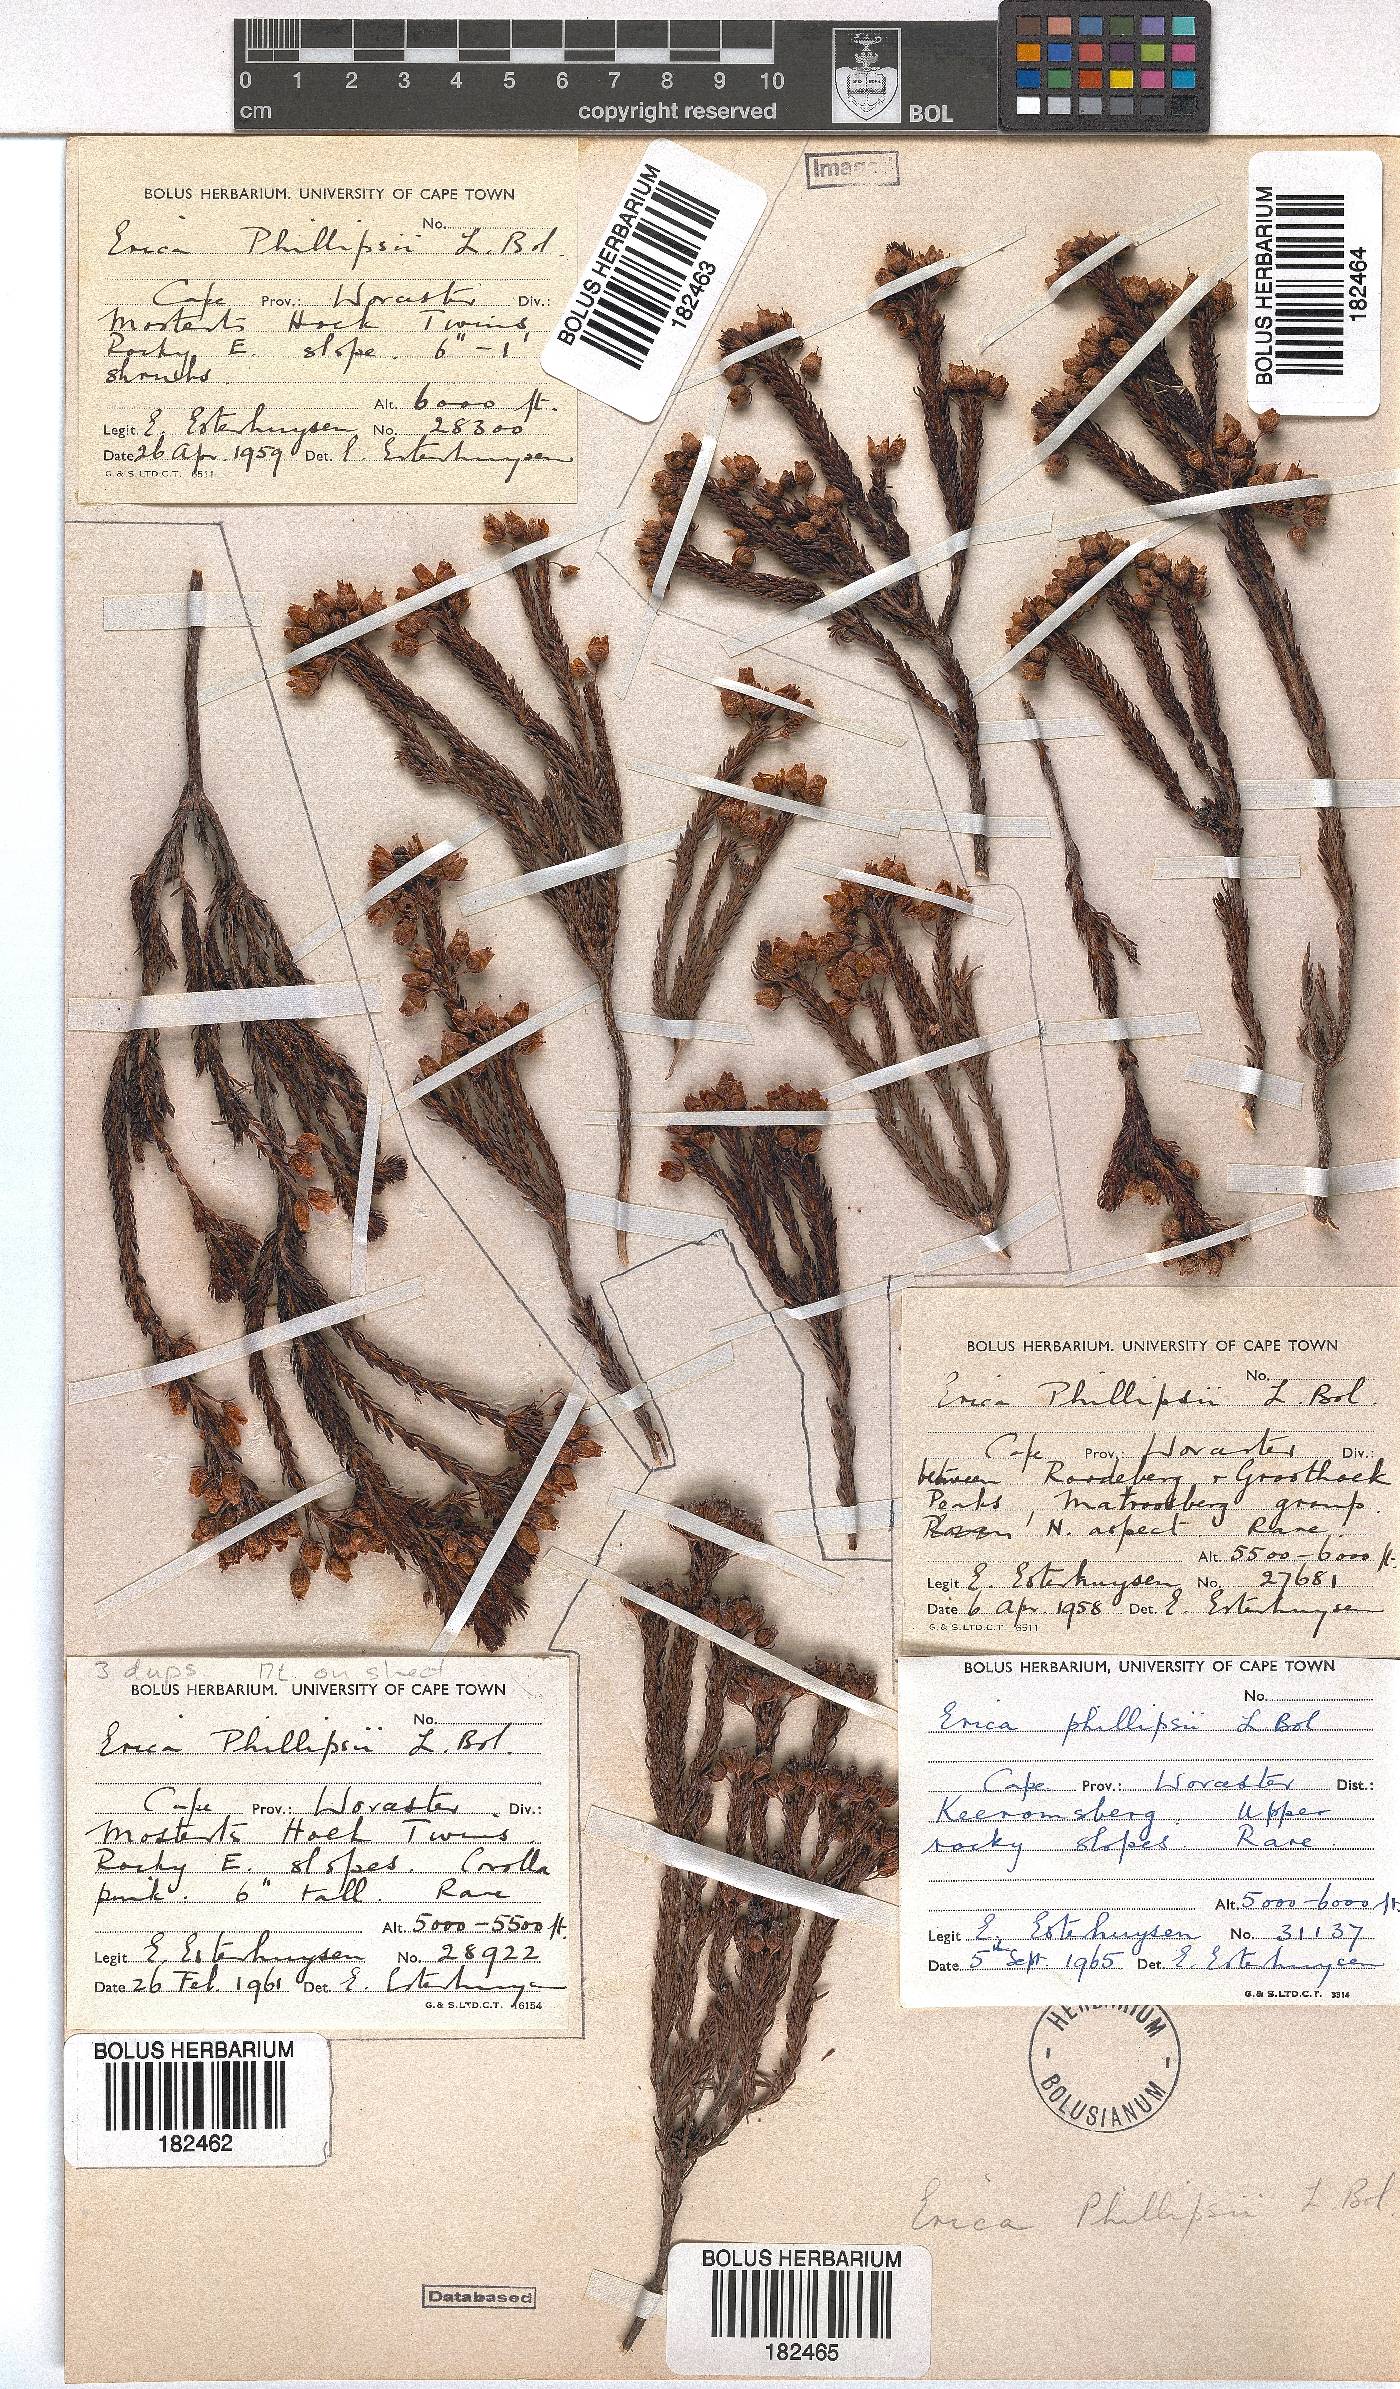 0 1 2 3 4 5 6 7 8 9 10
cm
copyright reserved
BOL
Imaged
BOLUS HERBARIUM. UNIVERSITY OF CAPE TOWN
No.
Erica Phillipsii L. Bol.
Cape Prov.: Worcester Div.:
Mosterts Hoek Twins
Rocky E. slope. 6" - 1'
shrubs.
Alt. 6000 ft.
Legit E. Esterhuysen No. 28300
Date 26 Apr. 1959 Det. E. Esterhuysen
G. & S. LTD. C.T. 6511
BOLUS HERBARIUM
182463
BOLUS HERBARIUM
182464
BOLUS HERBARIUM. UNIVERSITY OF CAPE TOWN
No.
Erica Phillipsii L. Bol.
Cape Prov.: Worcester Div.:
between Roodeberg & Groothoek
Peaks, Matroosberg group.
N. aspect. Rare.
Alt. 5500-6000 ft.
Legit E. Esterhuysen No. 27681
Date 6 Apr. 1958 Det. E. Esterhuysen
G. & S. LTD. C.T. 6511
3 dups. Mt. on sheet
BOLUS HERBARIUM. UNIVERSITY OF CAPE TOWN
No.
Erica Phillipsii L. Bol.
Cape Prov.: Worcester Div.:
Mosterts Hoek Twins.
Rocky E. slopes. Corolla
pink. 6" tall. Rare
Alt. 5000-5500 ft.
Legit E. Esterhuysen No. 28922
Date 26 Feb. 1961 Det. E. Esterhuysen
G. & S. LTD. C.T. 16154
BOLUS HERBARIUM
182462
BOLUS HERBARIUM, UNIVERSITY OF CAPE TOWN
No.
Erica phillipsii L Bol
Cape Prov.: Worcester Dist.:
Keeromsberg. Upper
rocky slopes. Rare.
Alt. 5000-6000 ft.
Legit E. Esterhuysen No. 31137
Date 5th Sept 1965 Det. E. Esterhuysen
G. & S. LTD. C.T. 3814
HERBARIUM
- BOLUSIANUM -
Erica Phillipsii L. Bol
Databased
BOLUS HERBARIUM
182465